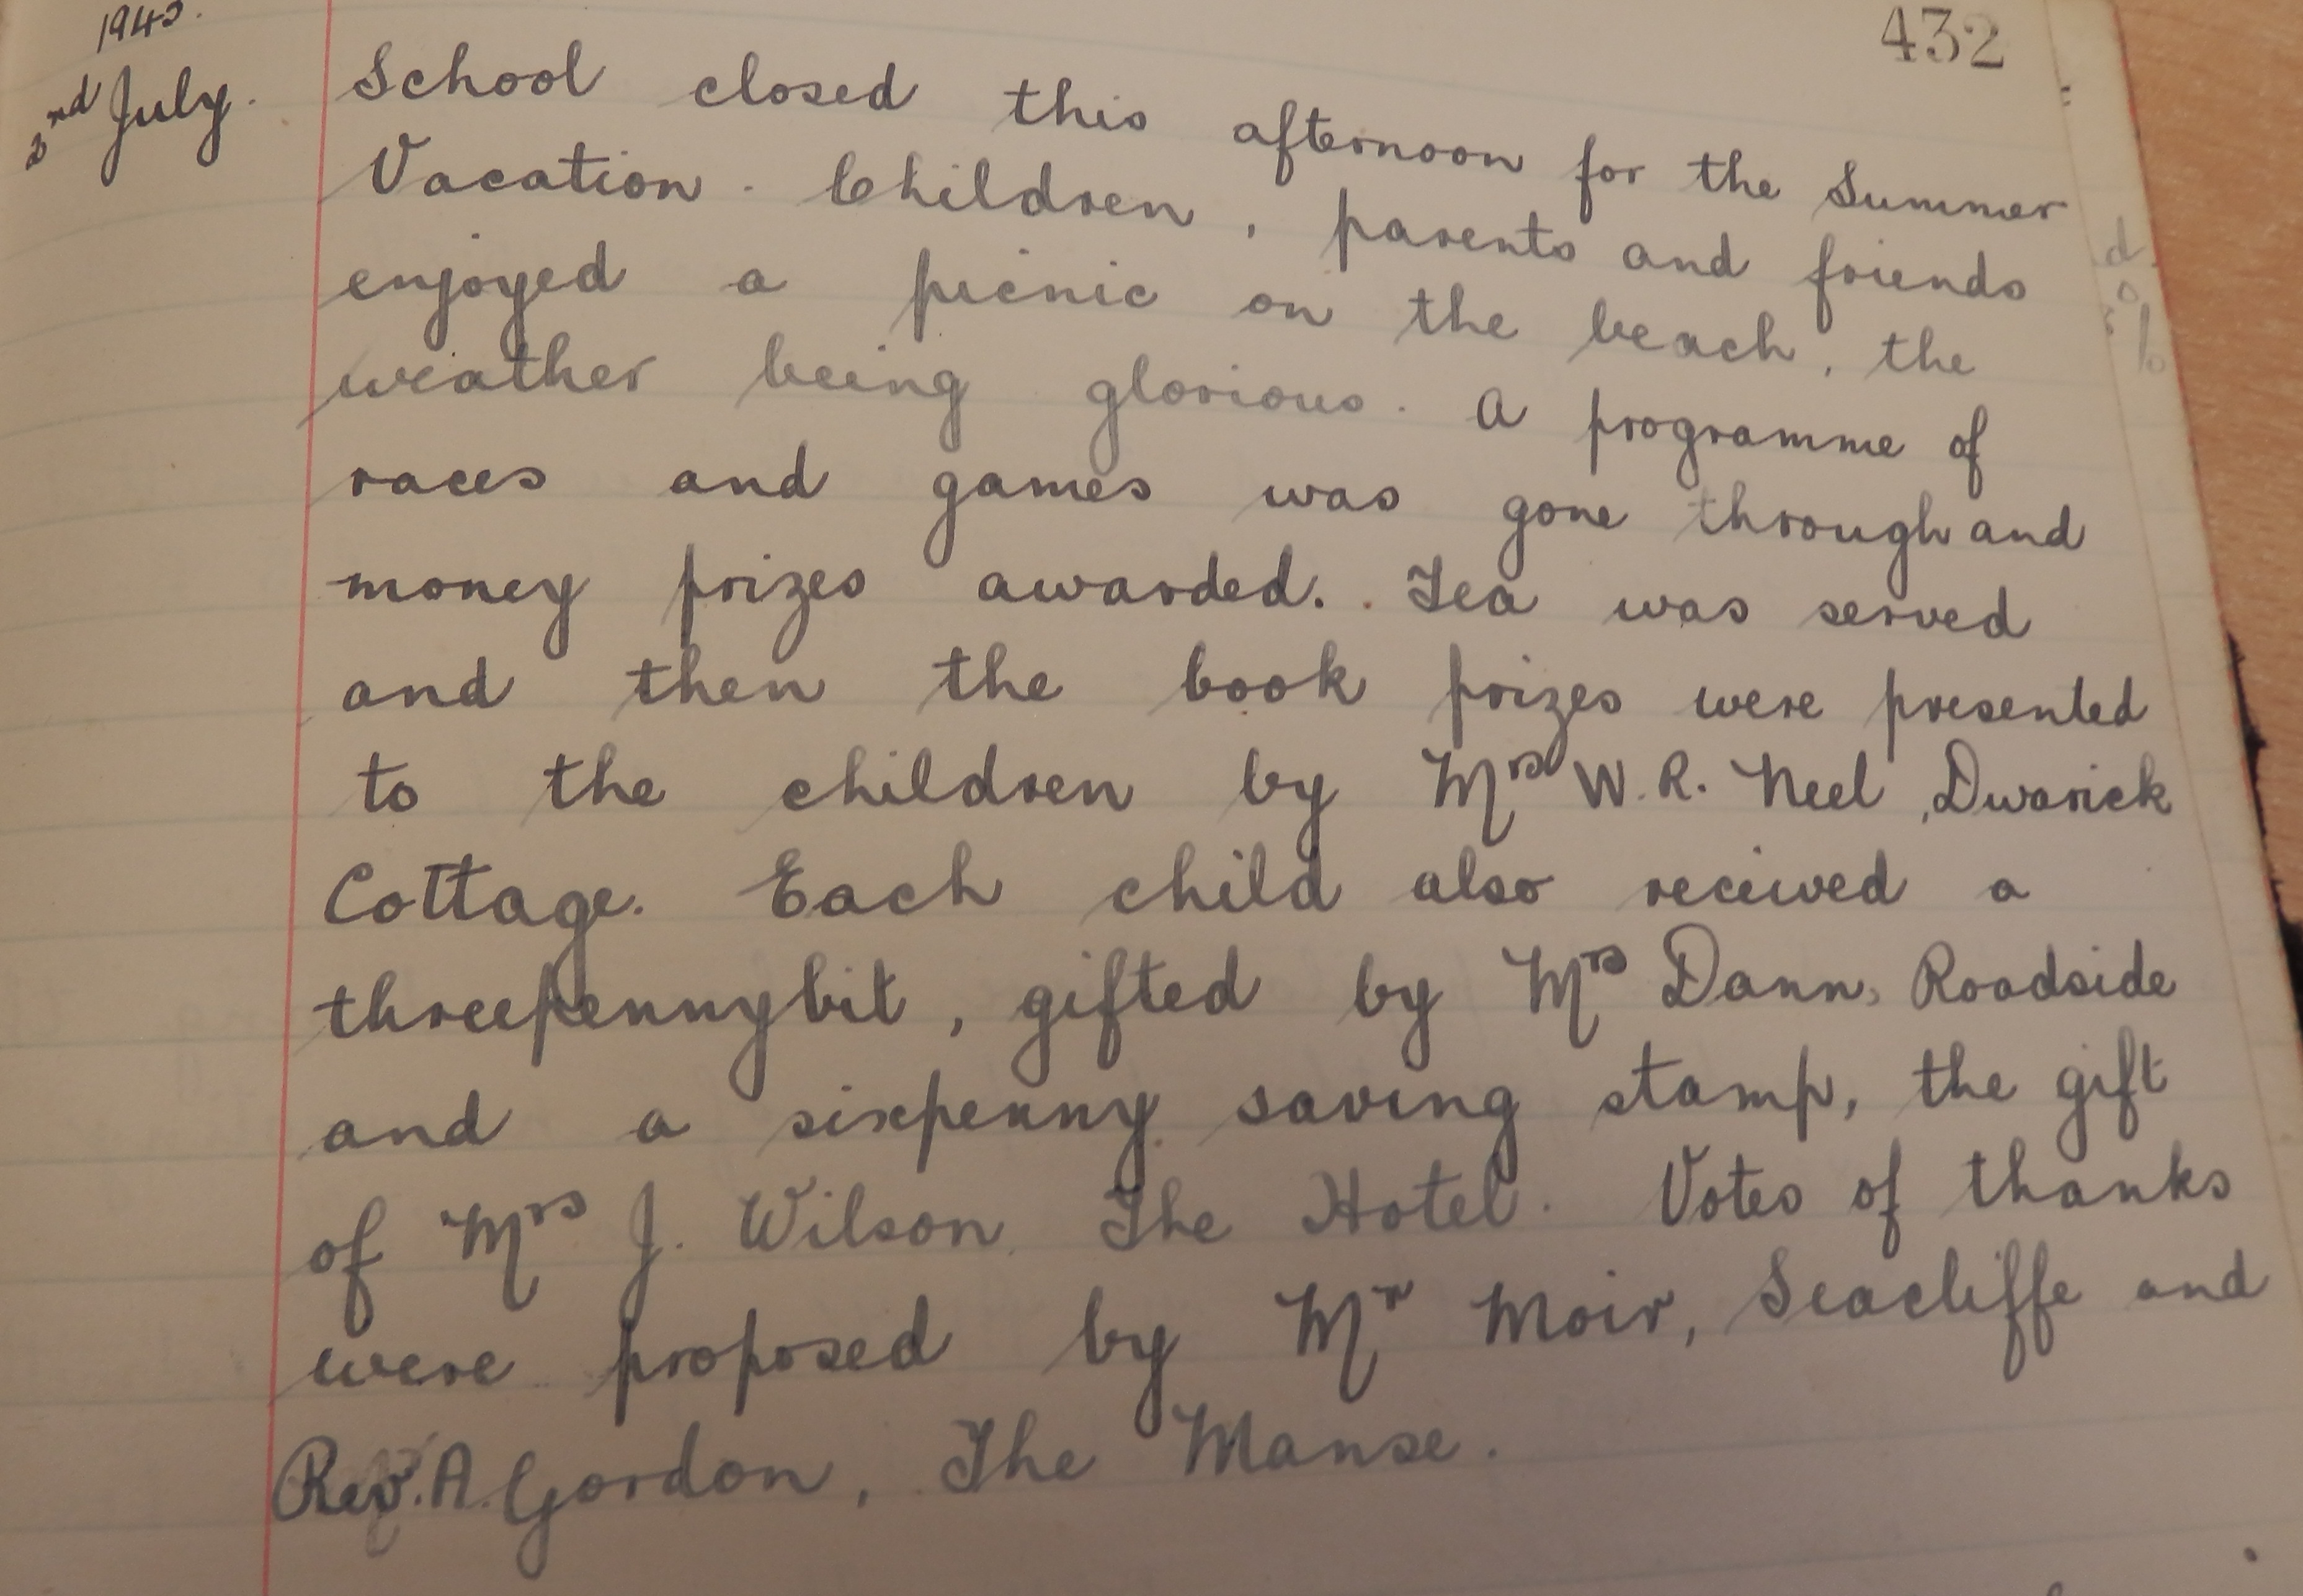 432
2nd July. School closed this afternoon for the Summer
Vacation. Children, parents and friends
enjoyed a picnic on the beach, the
weather being glorious. A programme of
races and games was gone through and
money prizes awarded. Tea was served
and then the book prizes were presented
to the children by Mrs W. R. Neel, Dwarick
Cottage. Each child also received a
threepennybit, gifted by Mrs Dann, Roadside
and a sixpenny saving stamp, the gift
of Mrs J. Wilson, The Hotel. Votes of thanks
were proposed by Mr Moir, Seacliffe and
Rev. A. Gordon, The Manse.